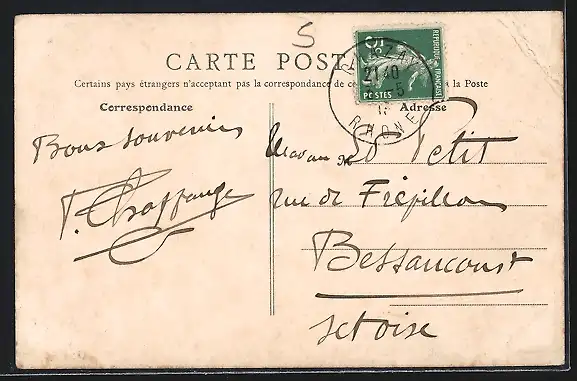 5
CARTE POSTALE
Certains pays étrangers n'acceptant pas la correspondance de ce à la Poste
Correspondance
Adresse
RÉPUBLIQUE FRANÇAISE
5
POSTES
21 40
-5
RHONE
Bons souvenirs
P. Chaffange
Madame Petit
rue de Frépillon
Bessancourt
Set oise